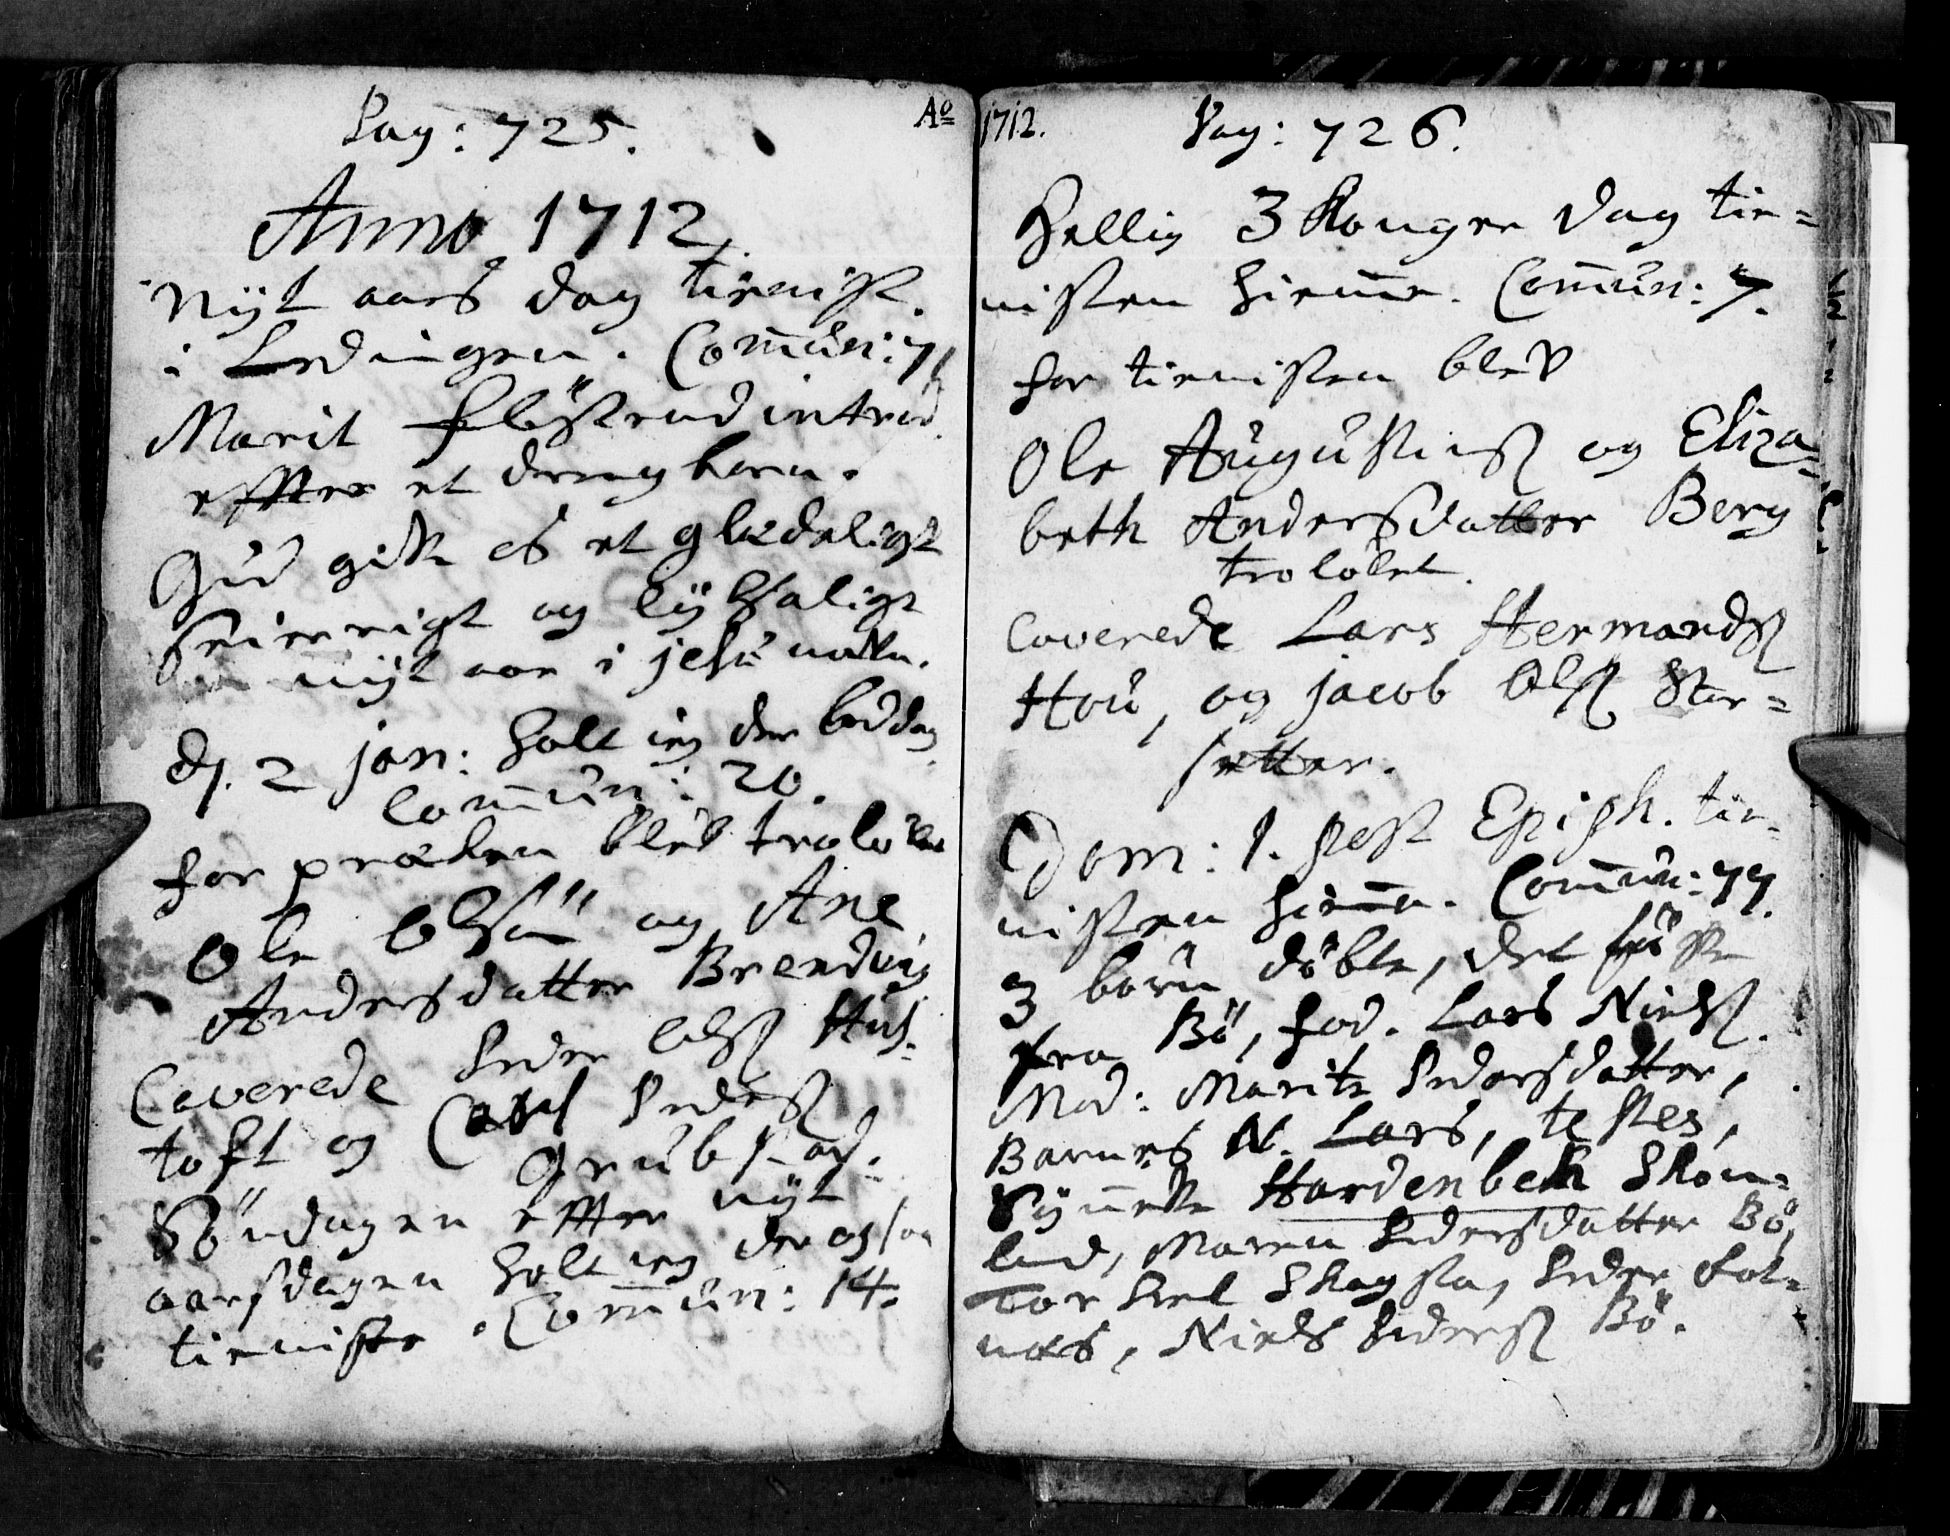 Pag: 725.
Anno 1712.
Nyt aars dag tienist.
i Ledingen. Com̄un: 71
Marit Fløstrud introd.
effter et dreng barn.
Gud gifve os et glædeligt
Seierrigt og lyksaligt
nyt aar i jesu nafn.
d. 2 jan: holt ieg der beddag
Com̄un: 20.
for præken blef trolofvet
Ole Olsøn og Ane
Andersdatter Brendvig
Caverede Peder Olss Hus-
toft og Carl Pederss
Grubstad.
Søndagen effter nyt
aarsdagen holt ieg der ogsaa
tieniste. Com̄un: 14.
Ao 1712.
Pag: 726.
Hellig 3 Konger dag tie=
nisten hiem̄e. Com̄un: 7.
for tienisten blev
Ole Augustinss og Eliza=
beth Andersdatter Berg
trolovet.
Caverede Lars Hermandss
Hou, og jacob Olss Stor=
setter.
Dom: 1. post Epiph. tie-
nisten hiem̄e. Com̄un: 77.
3 børn døbte, det første
fra Bø, fad. Lars Nielss.
Mod: Marite Pedersdatter,
Barnes N. Lars, testes,
Synneve Hardenbech Skon-
lud, Maren Pedersdatter Bø,
Torkel Skagsta, Peder Fot-
næs, Niels Pederss Bø.